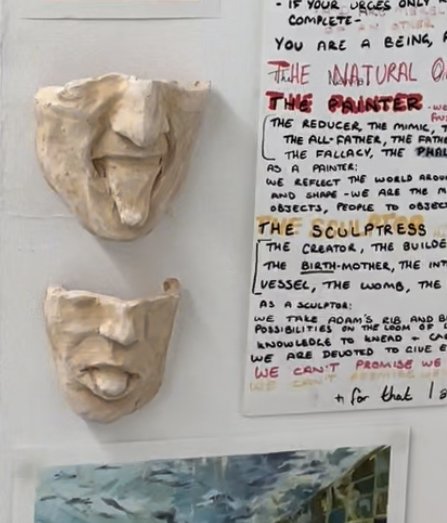 - IF YOUR URGES ONLY
COMPLETE-
YOU ARE A BEING,
THE NATURAL
THE PAINTER
THE REDUCER, THE MIMIC,
THE ALL-FATHER, THE
THE FALLACY, THE
AS A PAINTER:
WE REFLECT THE WORLD
AND SHAPE - WE ARE THE
OBJECTS, PEOPLE TO
THE SCULPTRESS
THE CREATOR, THE
THE BIRTH-MOTHER, THE
VESSEL, THE WOMB, THE
AS A SCULPTOR:
WE TAKE ADAM'S RIB AND
POSSIBILITIES ON THE LOOM OF
KNOWLEDGE TO KNEAD +
WE ARE DEVOTED TO GIVE
WE CAN'T PROMISE WE
+ for that I